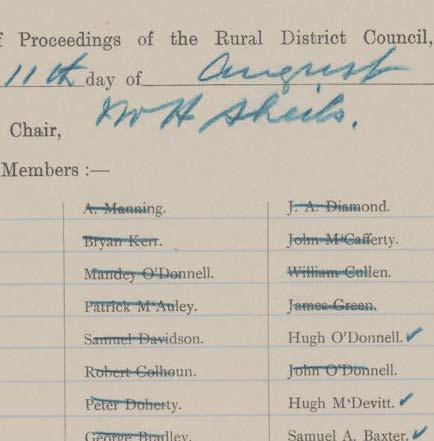 f Proceedings of the Rural District Council,
11th day of August
Chair, W H Sheils.
Members :—
A. Manning. J. A. Diamond.
Bryan Kerr. John M‘Cafferty.
Mandey O’Donnell. William Cullen.
Patrick M‘Auley. James Green.
Samuel Davidson. Hugh O’Donnell. ✓
Robert Colhoun. John O’Donnell.
Peter Doherty. Hugh M‘Devitt. ✓
George Bradley. Samuel A. Baxter. ✓